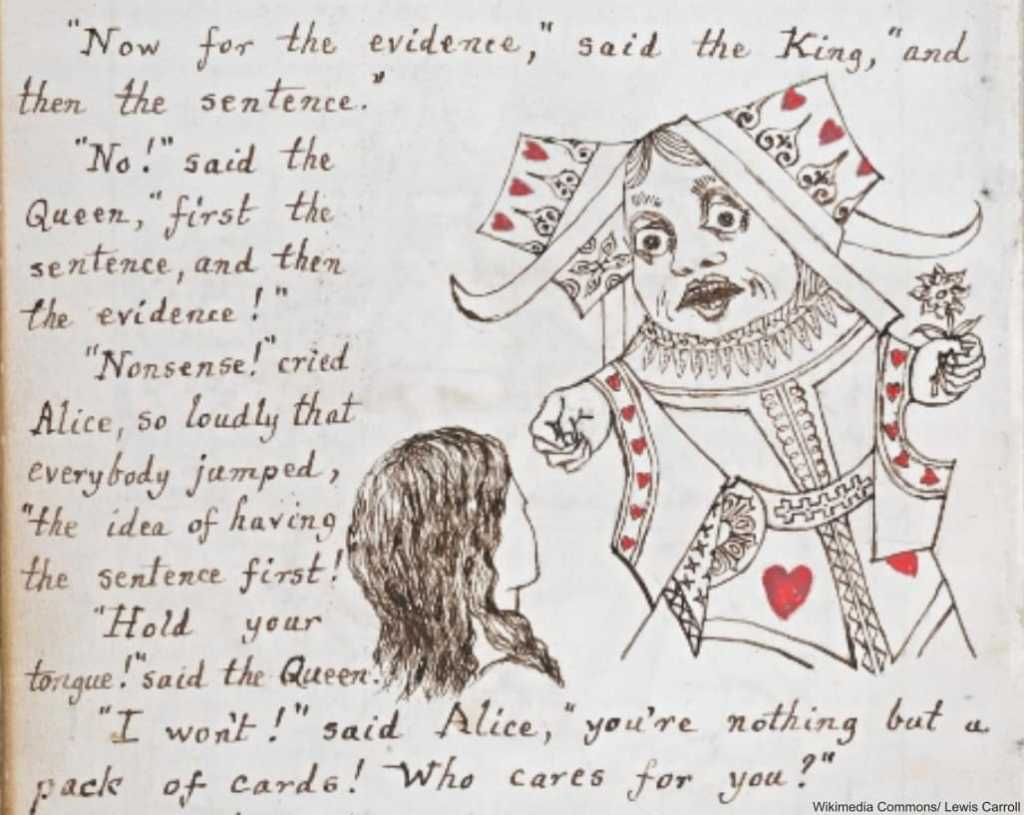 "Now for the evidence," said the King, "and
then the sentence."
"No!" said the
Queen, "first the
sentence, and then
the evidence!"
"Nonsense!" cried
Alice, so loudly that
everybody jumped,
"the idea of having
the sentence first!
"Hold your
tongue!" said the Queen.
"I won't!" said Alice, "you're nothing but a
pack of cards! Who cares for you?"
Wikimedia Commons/ Lewis Carroll